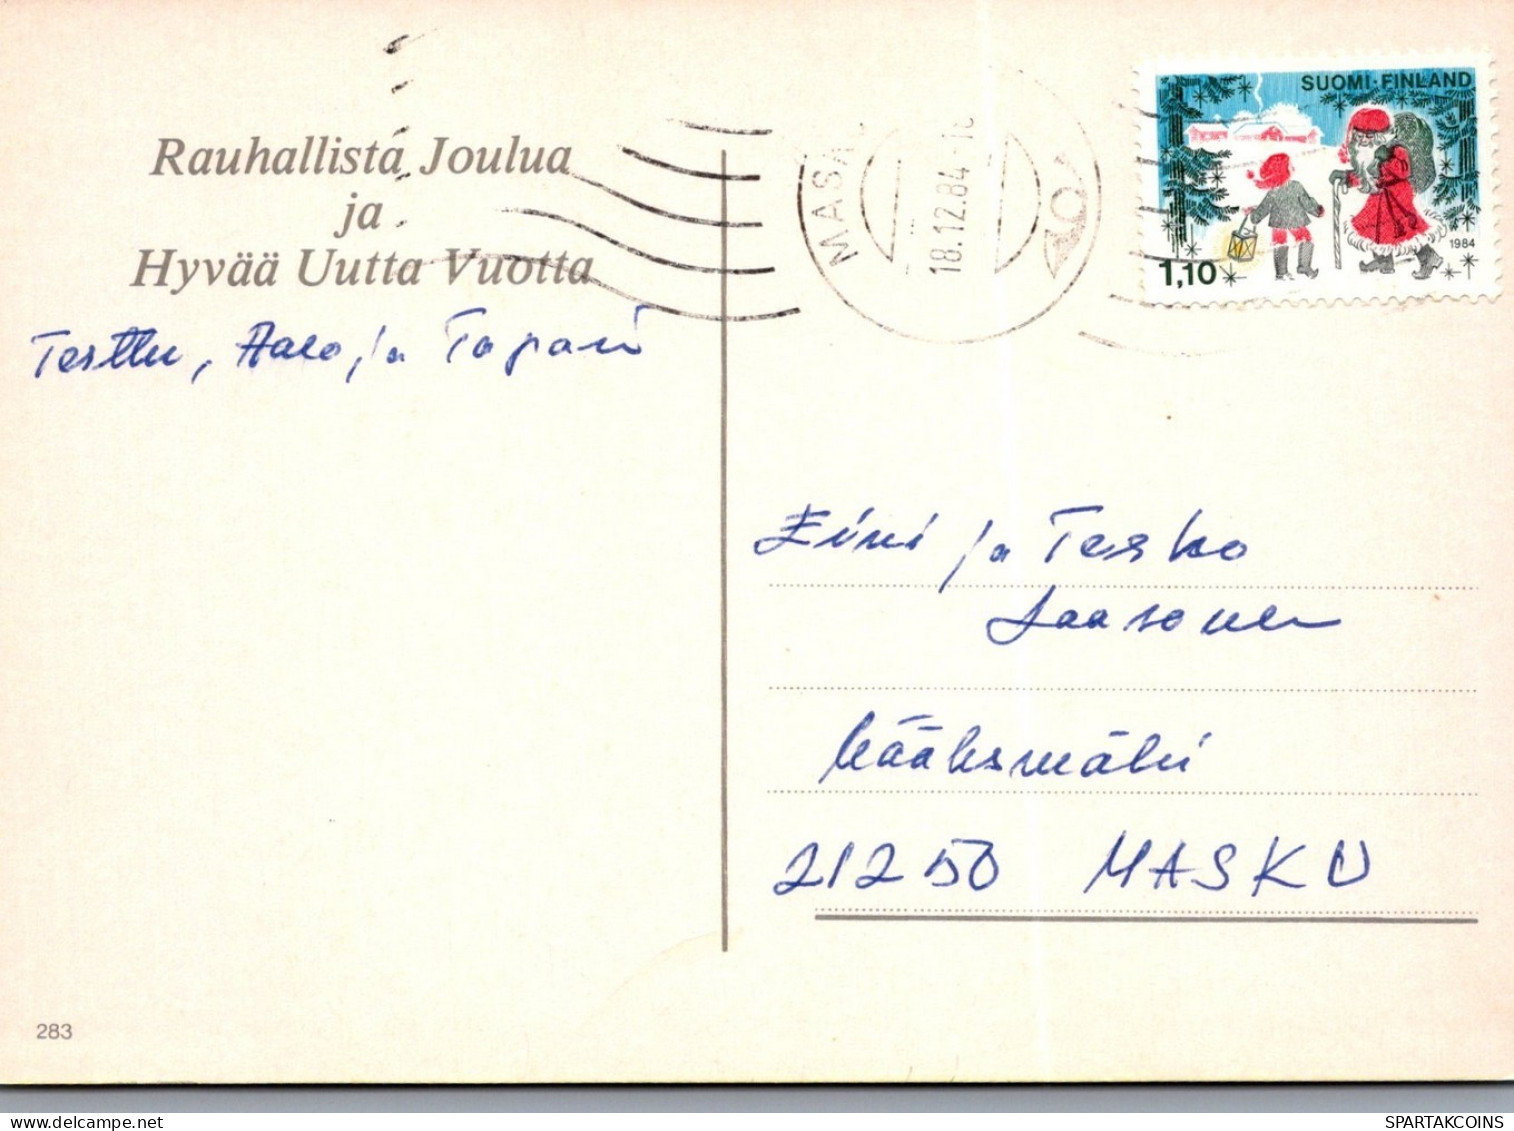 Rauhallista Joulua
ja
Hyvää Uutta Vuotta
Terttu, ja Tapani
MAS
18.12.84
SUOMI·FINLAND
1984
1,10
Eini ja Terho
Laasonen
Kääksmäki
21250 MASKU
283
SPARTAKCOINS